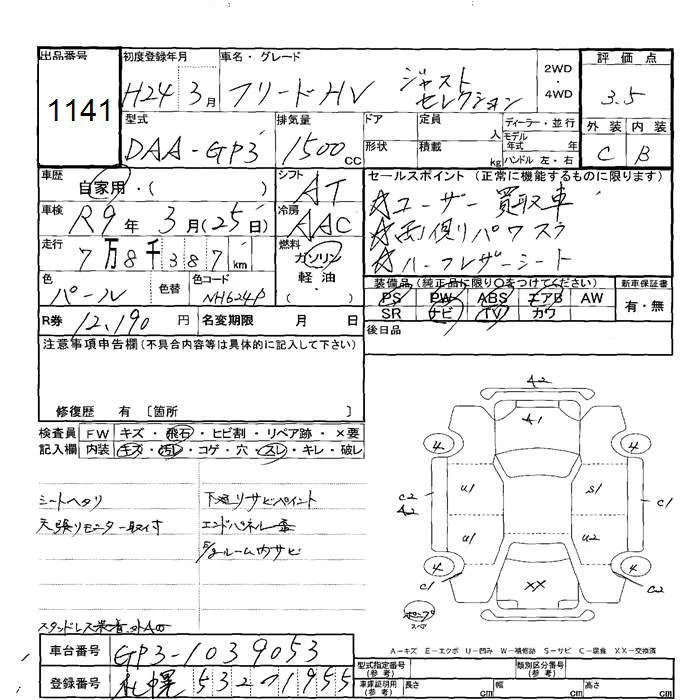 出品番号 初度登録年月 車名・グレード 2WD・4WD 評価点
1141 H24 3月 フリードHV ジャストセレクション 3.5
型式 排気量 ドア 定員 人 ディーラー・並行 外装 内装
DAA-GP3 1500 CC 形状 積載 kg モデル年式 年 ハンドル 左・右 C B
車歴 自家用・( ) シフト AT セールスポイント (正常に機能するものに限ります)
車検 R9年 3月(25日) 冷房 AAC ☆ユーザー買取車
走行 7万8千387km 燃料 ガソリン・軽油・( ) ☆両側パワスラ
☆ハーフレザーシート
色 パール 色替 色コード NH624P 装備品(純正品に限り○をつけてください) 新車保証書
PS PW ABS エアB AW 有・無
R券 12,190円 名変期限 月 日 SR ナビ TV カワ
注意事項申告欄(不具合内容等は具体的に記入して下さい) 後日品
修復歴 有 〔箇所 〕
検査員 FW キズ・飛石・ヒビ割・リペア跡・×要
記入欄 内装 キズ・汚レ・コゲ・穴・スレ・キレ・破レ
シートヘタリ 下廻リサビペイント
天張リモニター取付 エンドパネル一番
ルーム内サビ
A2
A1
4 4
U1 S1
C2 A2 C1
U1 U2
4 4
C1 XX C2
スペア
A-キズ E-エクボ U-凹み W-補修跡 S-サビ C-腐食 XX-交換済
車台番号 GP3-1039053
登録番号 札幌 532 つ 1955
型式指定番号(参考) 類別区分番号(参考)
車庫証明用(参考) 長さ cm 幅 cm 高さ cm